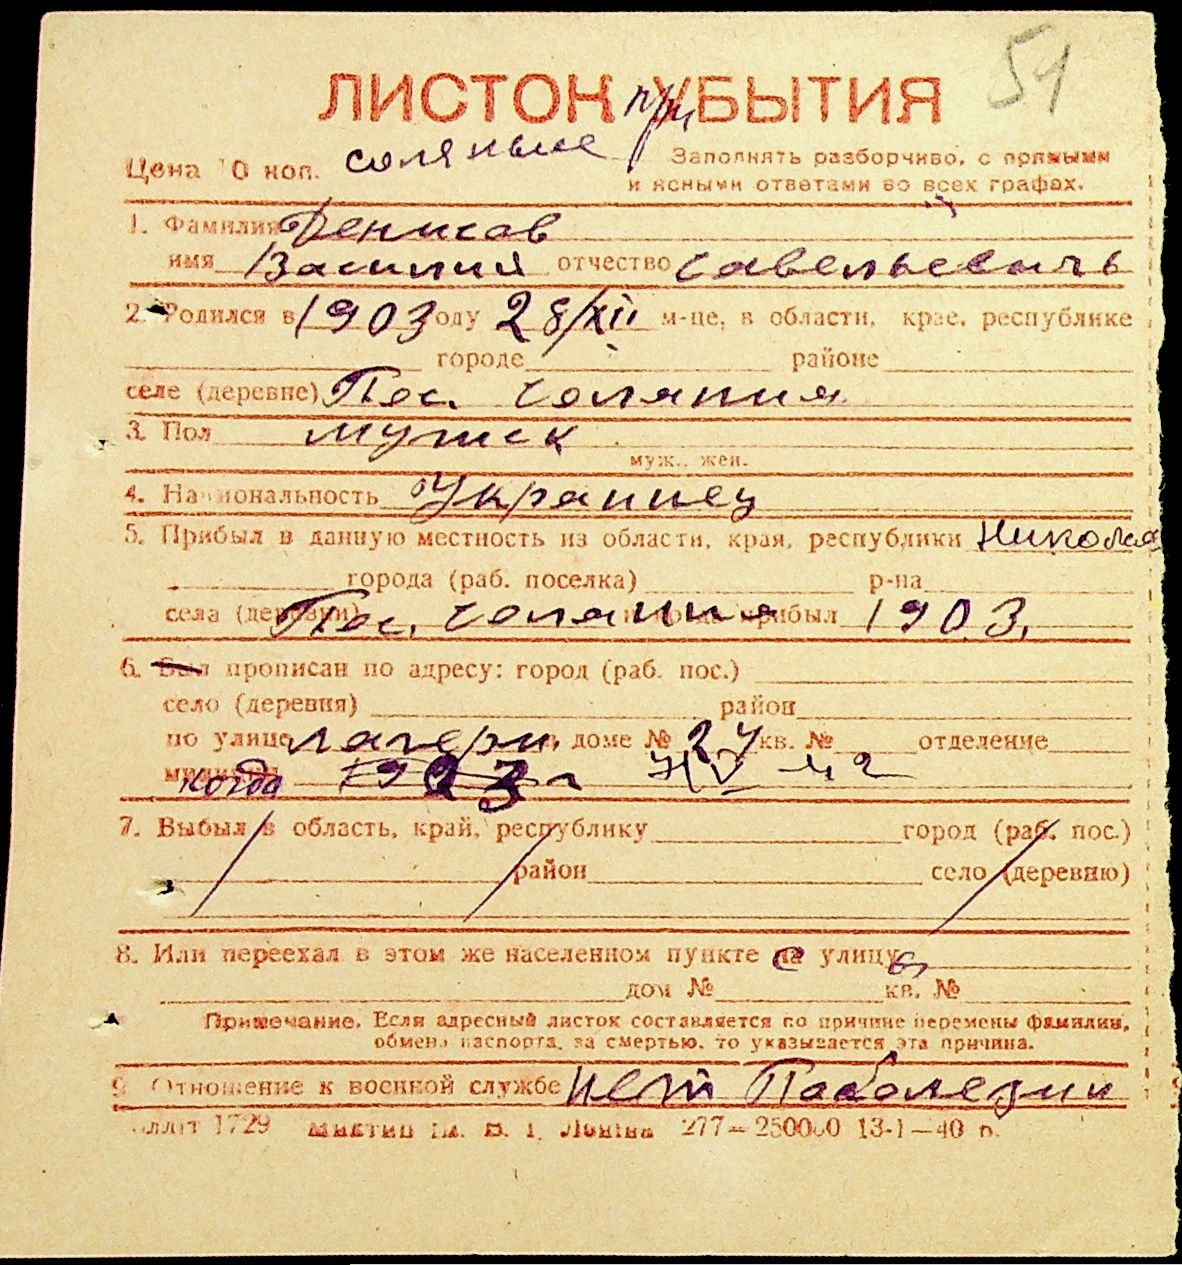 51
ЛИСТОК УБЫТИЯ
Цена 10 коп. соляные Заполнять разборчиво, с прямыми
и ясными ответами во всех графах.
1. Фамилия Денисов
имя Василия отчество Савельевичь
2. Родился в 1903 году 28/XII м-це, в области, крае, республике
городе районе
селе (деревне) Пос. Соляния
3. Пол мужск
муж., жен.
4. Национальность Украинец
5. Прибыл в данную местность из области, края, республики Никола
города (раб. поселка) р-на
села (деревни) Пос. Соляния и когда прибыл 1903.
6. Был прописан по адресу: город (раб. пос.)
село (деревня) район
по улице лагери, доме № 24 кв. № отделение
милиции когда 1923 г 42
7. Выбыл в область, край, республику город (раб. пос.)
район село (деревню)
8. Или переехал в этом же населенном пункте на улицу
дом № кв. №
Примечание. Если адресный листок составляется по причине перемены фамилии,
обмена паспорта, за смертью, то указывается эта причина.
9. Отношение к военной службе Нет Паболезни
1729 Ленина 277—250000 13-1—40 р.